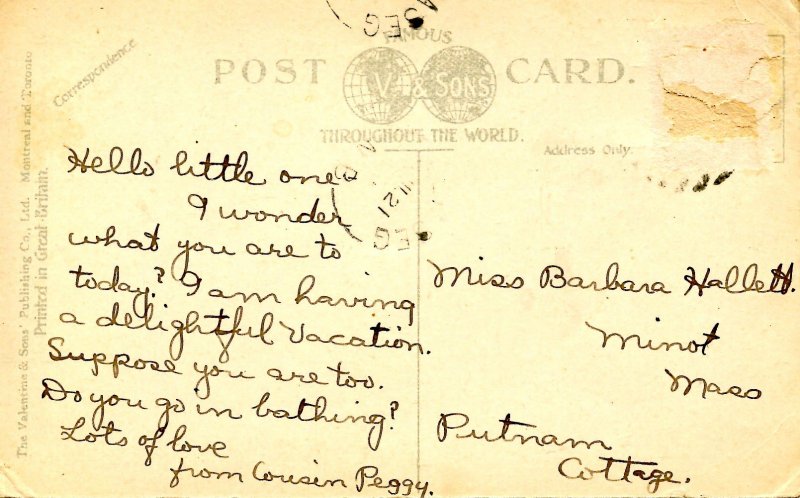 FAMOUS
POST CARD.
V. & SONS
THROUGHOUT THE WORLD.
Correspondence
Address Only.
The Valentine & Sons' Publishing Co., Ltd. Montreal and Toronto
Printed in Great Britain.
Hello little one
I wonder
what you are to
today? I am having
a delightful vacation.
Suppose you are too.
Do you go in bathing?
Lots of love
from Cousin Peggy.
Miss Barbara Hallett.
Minot
Mass
Putnam
Cottage.